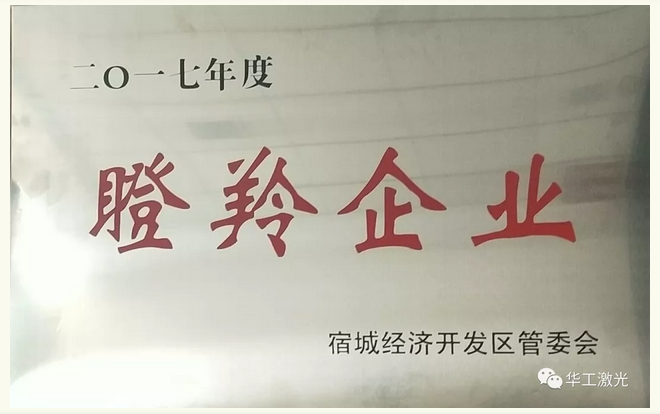 二〇一七年度
瞪羚企业
宿城经济开发区管委会
华工激光